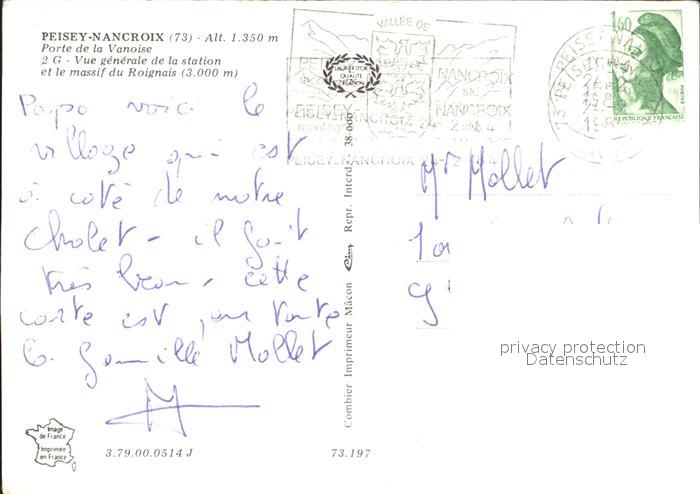 PEISEY-NANCROIX (73) - Alt. 1.350 m
Porte de la Vanoise
2 G - Vue générale de la station
et le massif du Roignais (3.000 m)
Papa voici le
village qui est
à coté de notre
chalet - il fait
très beau, cette
carte est pour toute
la famille Mollet
VALLÉE DE
NANCROIX
ski
PEISEY
NANCROIX
PEISEY-NANCROIX
1,60
POSTES
REPUBLIQUE FRANÇAISE
Mr Mollet
Combier Imprimeur Mâcon
Repr. Interd.
38-000
privacy protection
Datenschutz
Image
de France
Imprimée
en France
3.79.00.0514 J
73.197